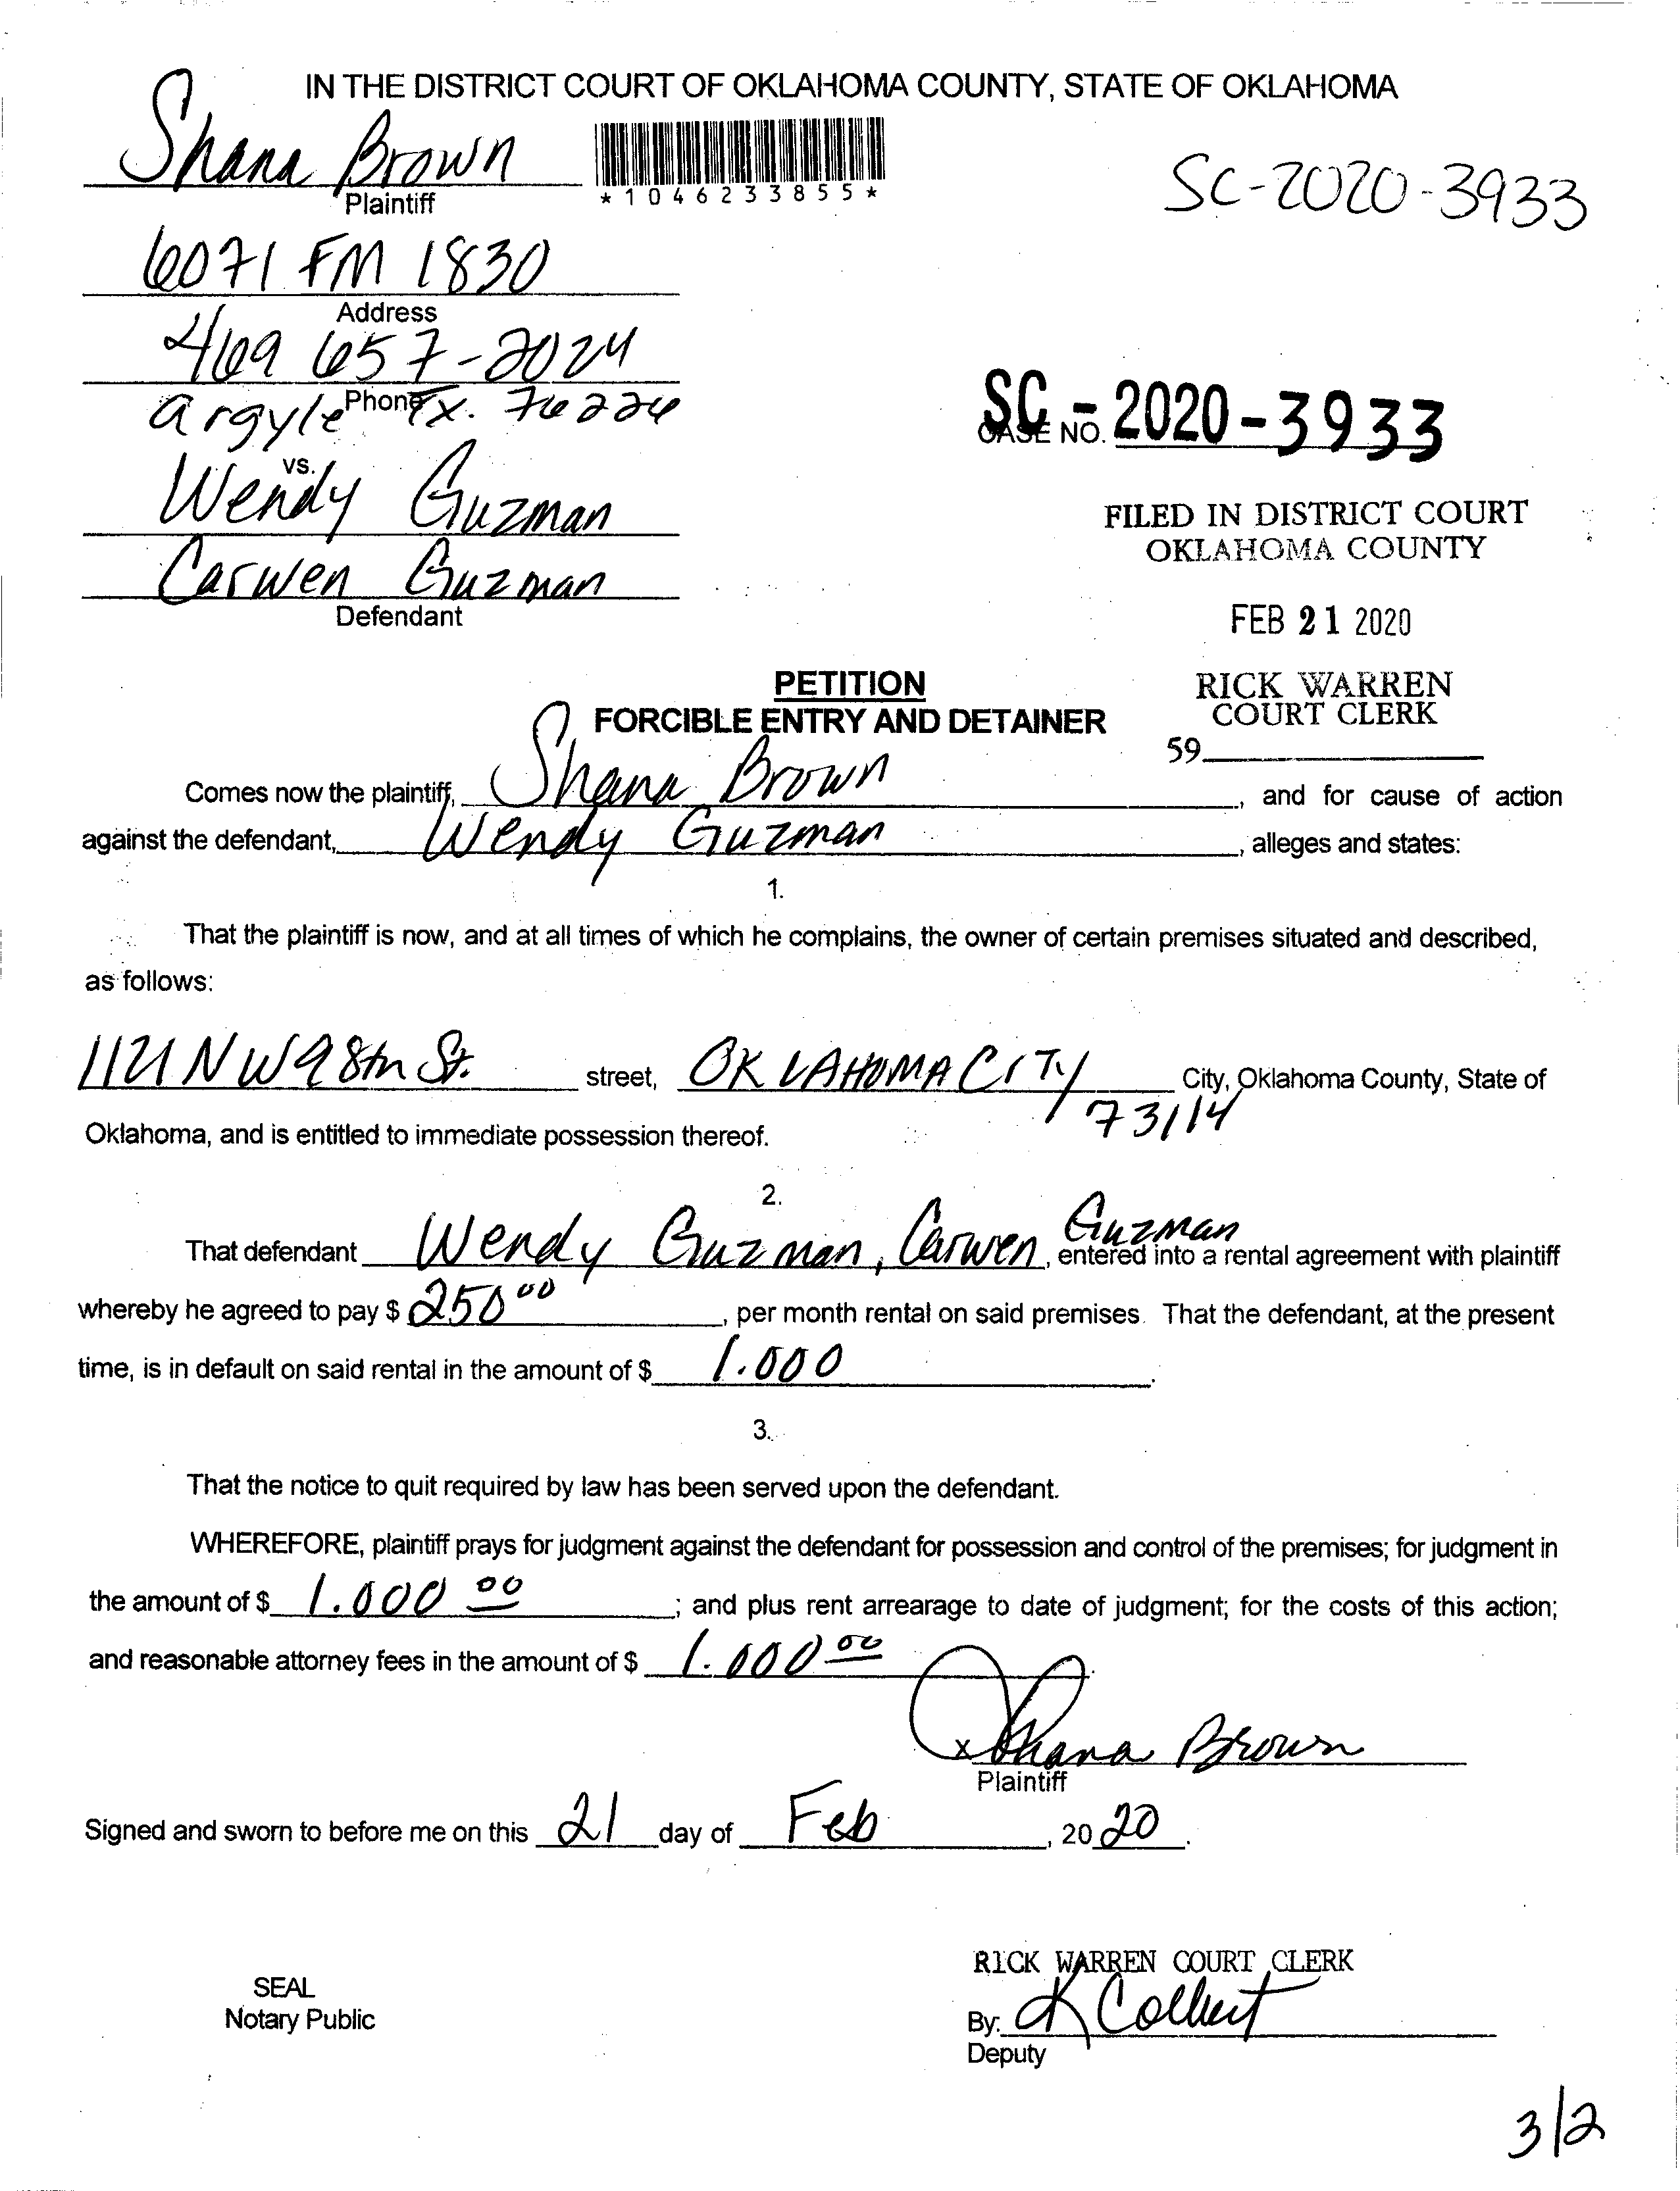 IN THE DISTRICT COURT OF OKLAHOMA COUNTY, STATE OF OKLAHOMA
Shana Brown
Plaintiff
*1046233855*
SC-2020-3933
6071 FM 1830
Address
469 657-2024
Phone
argyle Tx. 76226
SC-2020-3933
CASE NO.
vs.
Wendy Guzman
Carwen Guzman
Defendant
FILED IN DISTRICT COURT
OKLAHOMA COUNTY
FEB 21 2020
RICK WARREN
COURT CLERK
59
PETITION
FORCIBLE ENTRY AND DETAINER
Comes now the plaintiff, Shana Brown, and for cause of action
against the defendant, Wendy Guzman, alleges and states:
1.
That the plaintiff is now, and at all times of which he complains, the owner of certain premises situated and described,
as follows:
1121 NW 98th St. street, OKLAHOMA CITY City, Oklahoma County, State of
73114
Oklahoma, and is entitled to immediate possession thereof.
2.
That defendant Wendy Guzman, Carwen Guzman, entered into a rental agreement with plaintiff
whereby he agreed to pay $ 250 00, per month rental on said premises. That the defendant, at the present
time, is in default on said rental in the amount of $ 1.000.
3.
That the notice to quit required by law has been served upon the defendant.
WHEREFORE, plaintiff prays for judgment against the defendant for possession and control of the premises; for judgment in
the amount of $ 1.000 00; and plus rent arrearage to date of judgment; for the costs of this action;
and reasonable attorney fees in the amount of $ 1.000 00.
x Shana Brown
Plaintiff
Signed and sworn to before me on this 21 day of Feb, 2020.
RICK WARREN COURT CLERK
SEAL
Notary Public
By: K Colbert
Deputy
3/2